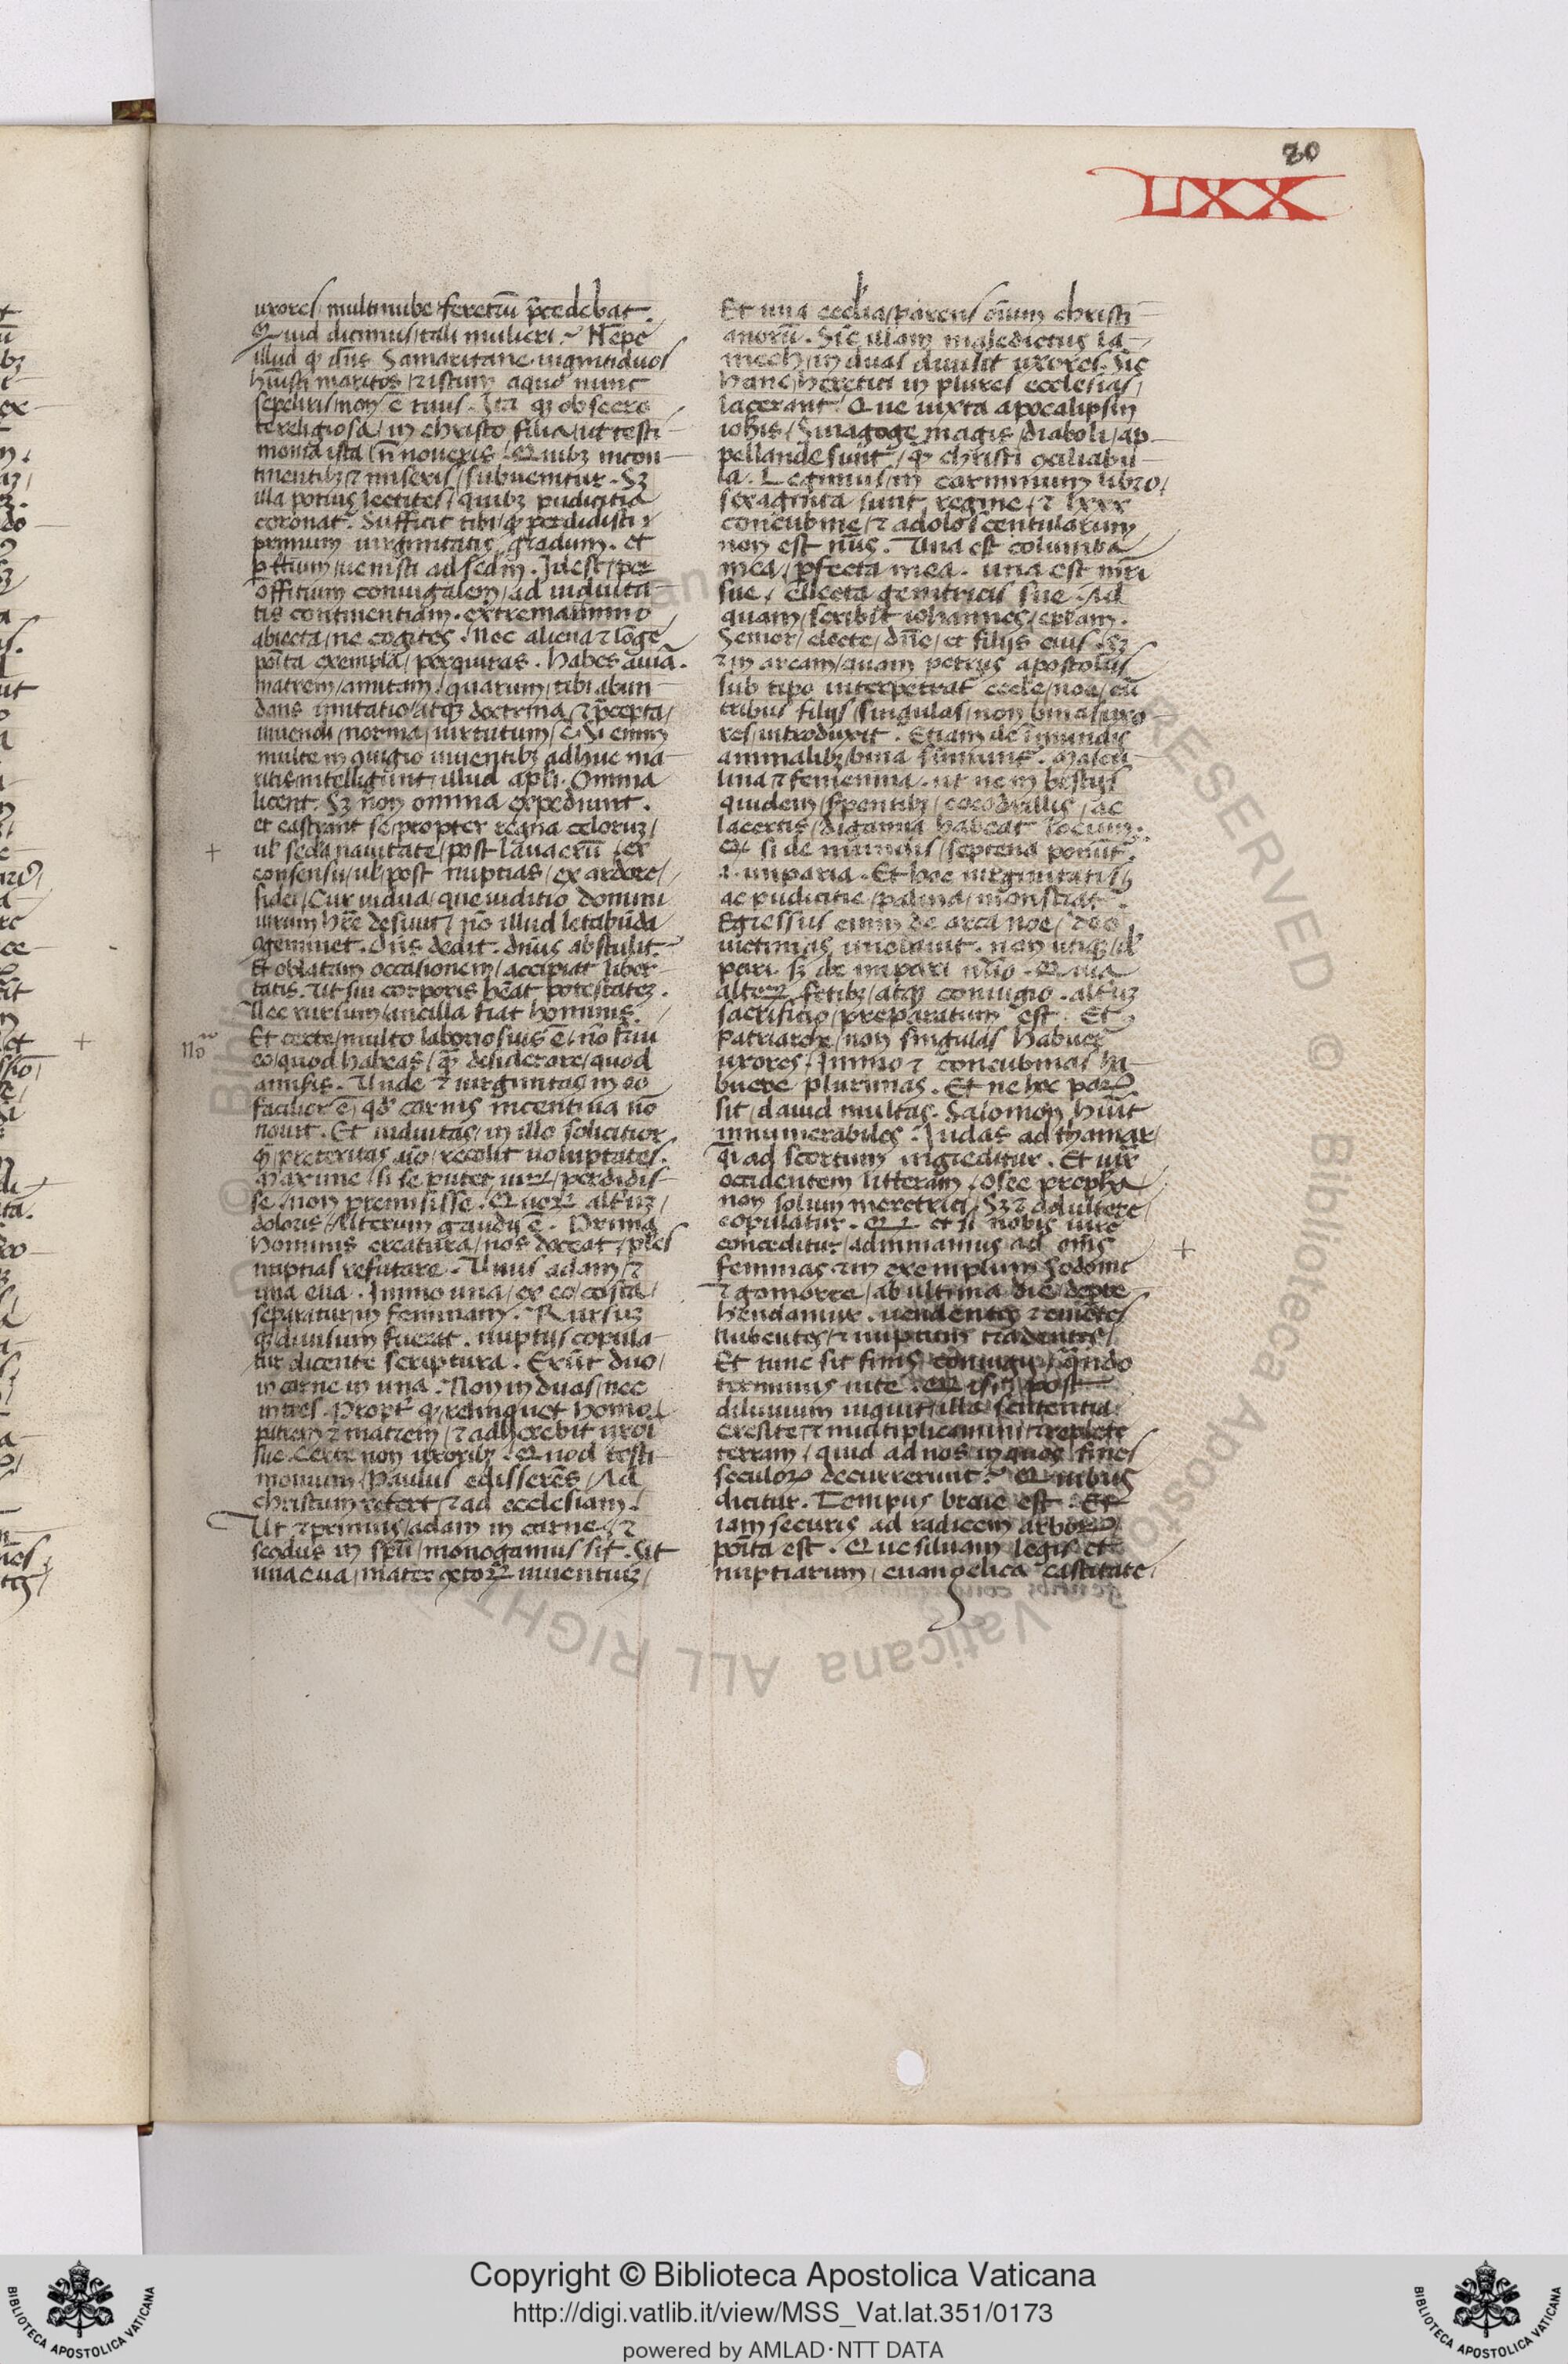 80
LXX
uxores multinube feretrũ p̃cedebat.
Quid dicimus tali mulieri? Nẽpe
illud qđ dñs Samaritane. uigintiduos
hĩuisti maritos / ⁊ istum a quo nunc
sepeliris / non ẽ tuus. Ita qʒ obsecro
te religiosa / in christo filia / ut testi
monia ista nõ noueris / Quibʒ incon
tinentibʒ ⁊ miseris / subuenitur. Sʒ
illa potius lectites / quibʒ pudicitia
coronat̃. Sufficit tibi / qđ perdidisti
primum uirginitatis gradum. et
p tertium / uenisti ad scd̃m. Id est / per
offitium coniugalem / ad uiduita
tis continentiam. extrema immo
abiecta / ne cogites. Nec aliena ⁊ lõge
poĩta exempla / perquiras. Habes auiã.
matrem / amitam / quarum / tibi abun
dans imitatio / atqʒ doctrina / ⁊ p̃cepta /
uiuendi / norma / uirtutum / ẽ. Si enim
multe in ꝯiugio uiuentibʒ adhuc ma
ritis / intelligunt / illud apłi. Omnia
licent. Sʒ non omnia expediunt.
et castrant se / propter regna celoruʒ /
uł scd̃a natiuitate / post lauacrũ / ex
consensu / uł post nuptias / ex ardore /
fidei / Cur uidua / que iuditio domini
uirum hẽre desiuit / nõ illud letabũda
ꝯgeminet. dñs dedit. dñus abstulit.
Et oblatam occasionem / accipiat liber
tatis. Ut sui corporis hẽat potestateʒ.
Nec rursum / ancilla fiat hominis.
No
Et certe / multo laboriosius ẽ / nõ frui
eo / quod habeas / qʒ̃ desiderare / quod
amisis. Unde ⁊ uirginitas in eo
facilior ẽ / qđ carnis incentiua nõ
nouit. Et uiduitas / in illo solicitior
qđ / preteritas aĩo / recolit uoluptates.
Maxime / si se putet uirꝝ / perdidis
se / non premisisse. Quoꝝ altĩuʒ /
doloris / Alterum gaudij ẽ. Prima
hominis creatura / nos doceat / plɇs
nuptias refutare. Unus adam / ⁊
una eua. Immo una / ex eo / costa /
separatur / in feminam. Rursuʒ
qđ diuisum fuerat. nuptijs copula
tur dicente scriptura. Erũt duo /
in carne in una. Non in duas / nec
in tres. Propt̃ qđ relinquet homo
patrem ⁊ matrem / ⁊ adherebit uxori
sue. Certe non uxoribʒ. Quod testi
monium / Paulus edisserẽs / Ad
christum refert / ⁊ ad ecclesiam.
Ut ⁊ primus / adam in carne / ⁊
scodus in spũ / monogamus sit. Sit
una eua / mater cẽtoꝝ uiuentiuʒ /
Et una ecclĩa / parens õium christi
anorũ. Sic illam maledictus la
mech / in duas diuisit uxores. Sic
hanc / heretici in plures ecclesias /
lacerant. Que iuxta apocalipsin
iohis / Sinagoge magis / diaboli / ap
pellande sunt / qʒ̃ christi ꝯciliabu
la. Legimus / in carminum libro /
sexaginta sunt regine / ⁊ lxxx
concubine / ⁊ adoloscentularum
non est nũs. Una est columba
mea / pfecta mea. una est mr̃i
sue / electa genitricis sue. Ad
quam / scribit iohannes / eplam.
Senior / electe / dñe / et filijs eius. Sʒ
⁊ in arcam / quam petrus apostolus
sub tipo interpetrat̃ eccłe / noe / cũ
tribus filijs / singulas / non binas / uxo
res / introduxit. Etiam de ĩmundis
animalibʒ / bina sumunt̃. mascu
lina ⁊ feminina. ut ne in bestijs
quidem / s̃pentibʒ / cocodrillis / ac
lacertis / digamia habeat locum.
Qꝫ si de mundis / septena ponunt̃.
i. imparia. Et hoc uirginitatis
ac pudicitie / palma / monstrat̃.
Egressus enim de arca noe / deo
uictimas imolauit. non utiqʒ / d̃
pari. sʒ de impari nũo. Quia
alteꝝ fetibʒ / atqʒ coniugio. altĩuʒ
sacrificio / preparatum est. Et
Patriarche / non singulas habuer̃
uxores / Immo ⁊ concubinas ha
buere plurimas. Et ne hoc paꝝ
sit / dauid multas. Salomon hũit
innumerabiles. Iudas ad thamar /
q̃i ad scortum ingreditur. Et iux̃
occidentem litteram / Osee propha
non solum meretrici / Sʒ ⁊ adultere /
copulatur. Qꝝ et si nobis iure
conceditur / adinniamus ad om̃s
feminas / ⁊ in exemplum sodome
⁊ gomorre / ab ultima die / depre
hendamur. uendentes ⁊ emẽtes /
Nubentes / ⁊ nuptum tradentes /
Et tunc sit finis coniugij / qñdo
terminus uite. Qꝝ si post
diluuium uiguit / illa sententia
Crescite / ⁊ multiplicamini / ⁊ replete
terram / quid ad nos / in quos fines
seculoꝝ decurrerunt? Quibus
dicitur. Tempus breue est. Et
iam securis ad radicem arboꝝ
poĩta est. Que siluam legis et
nuptiarum / euangelica castitate /
Copyright © Biblioteca Apostolica Vaticana
http://digi.vatlib.it/view/MSS_Vat.lat.351/0173
powered by AMLAD·NTT DATA
BIBLIOTECA APOSTOLICA VATICANA
BIBLIOTECA APOSTOLICA VATICANA